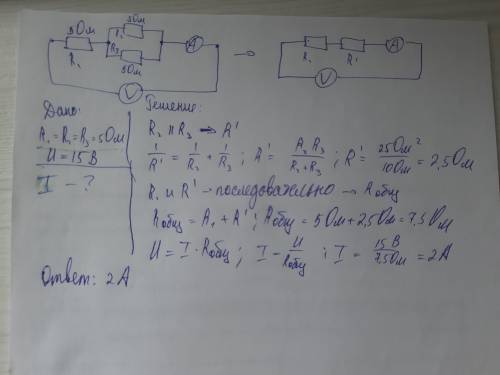 5 Ом
R₂
5 Ом
R₁
R₃
5 Ом
A
V
R₁
R'
A
V
Дано:
R₁ = R₂ = R₃ = 5 Ом
U = 15 В
I - ?
Решение:
R₂ || R₃ → R'
1/R' = 1/R₂ + 1/R₃ ; R' = R₂ R₃ / R₂ + R₃ ; R' = 25 Ом² / 10 Ом = 2,5 Ом
R₁ и R' → последовательно → Rобщ
Rобщ = R₁ + R' ; Rобщ = 5 Ом + 2,5 Ом = 7,5 Ом
U = I · Rобщ ; I = U / Rобщ ; I = 15 В / 7,5 Ом = 2 А
Ответ: 2 А